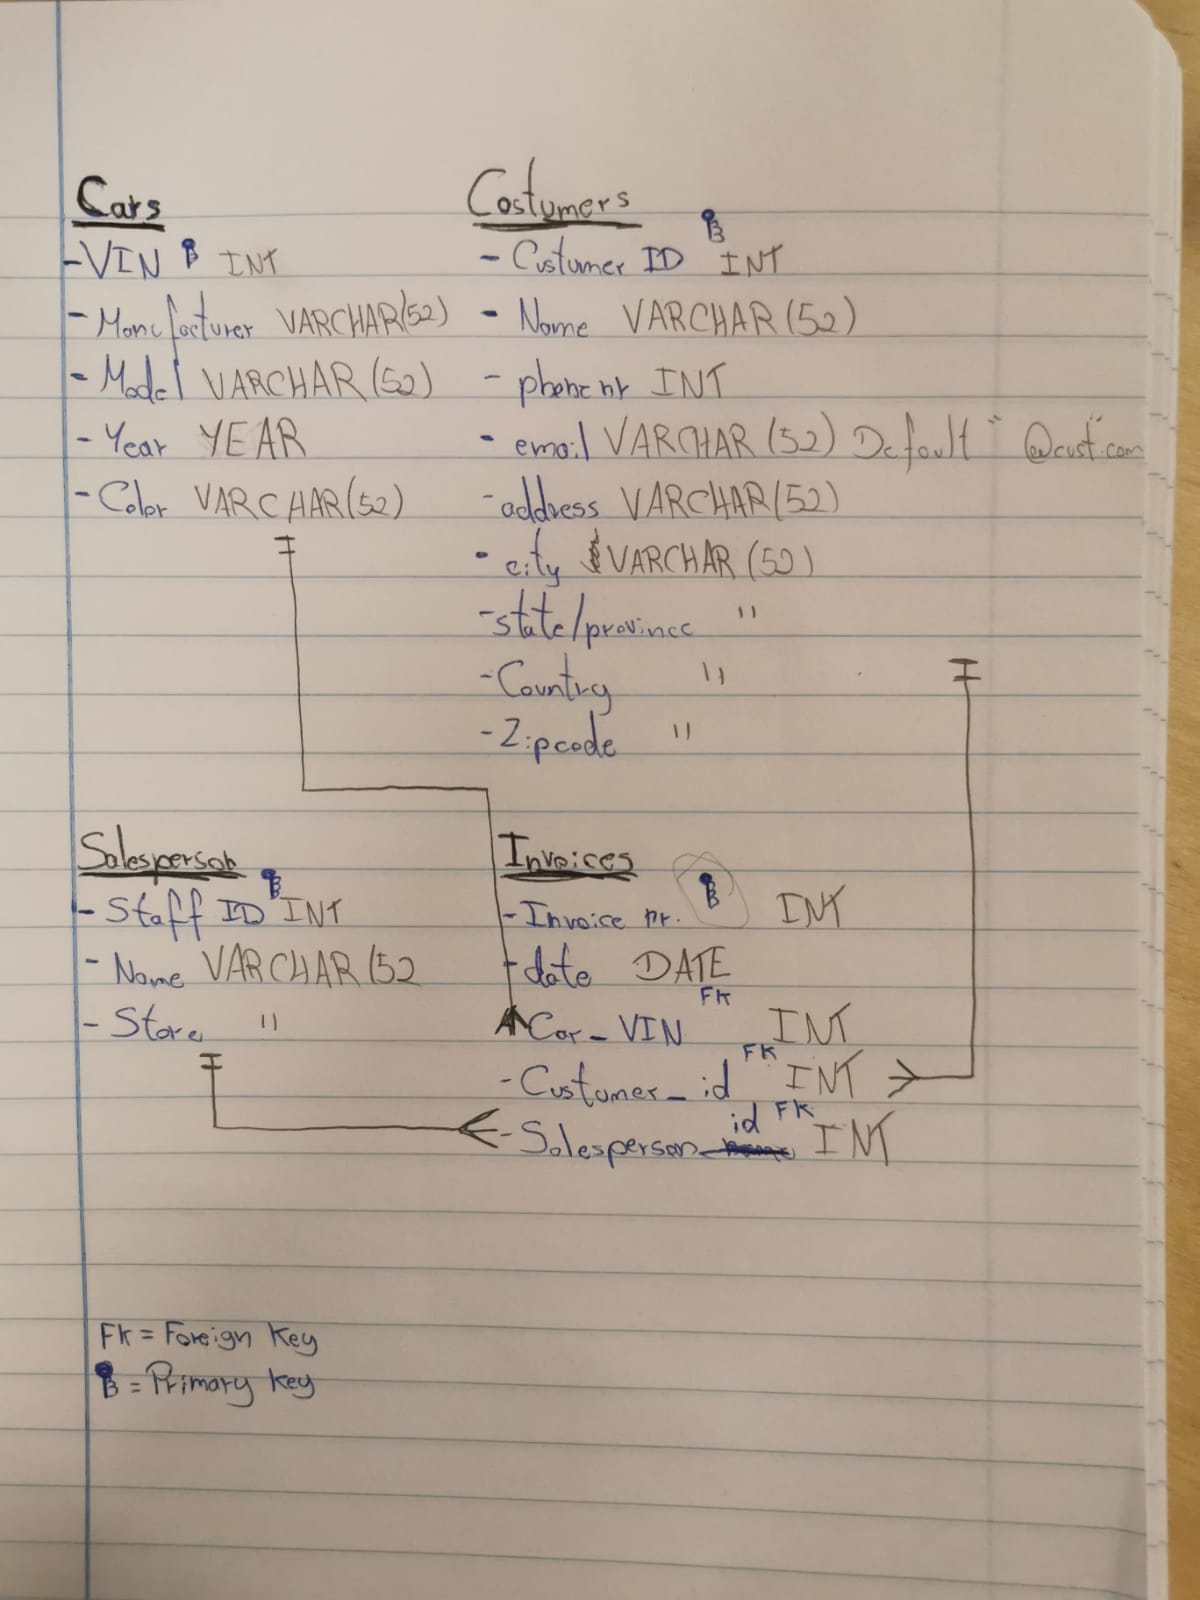 Cars
- VIN INT
- Manufacturer VARCHAR(52)
- Model VARCHAR (52)
- Year YEAR
- Color VARCHAR(52)
Costumers
- Custumer ID INT
- Name VARCHAR (52)
- phone nr INT
- email VARCHAR (52) Default "@cust.com"
- address VARCHAR(52)
- city VARCHAR (52)
- state/province "
- Country "
- Zipcode "
Salesperson
- Staff ID INT
- Name VARCHAR (52
- Store "
Invoices
- Invoice nr. INT
- date DATE
Car_VIN FK INT
- Custumer_id FK INT
- Salesperson_id FK INT
FK = Foreign Key
= Primary key